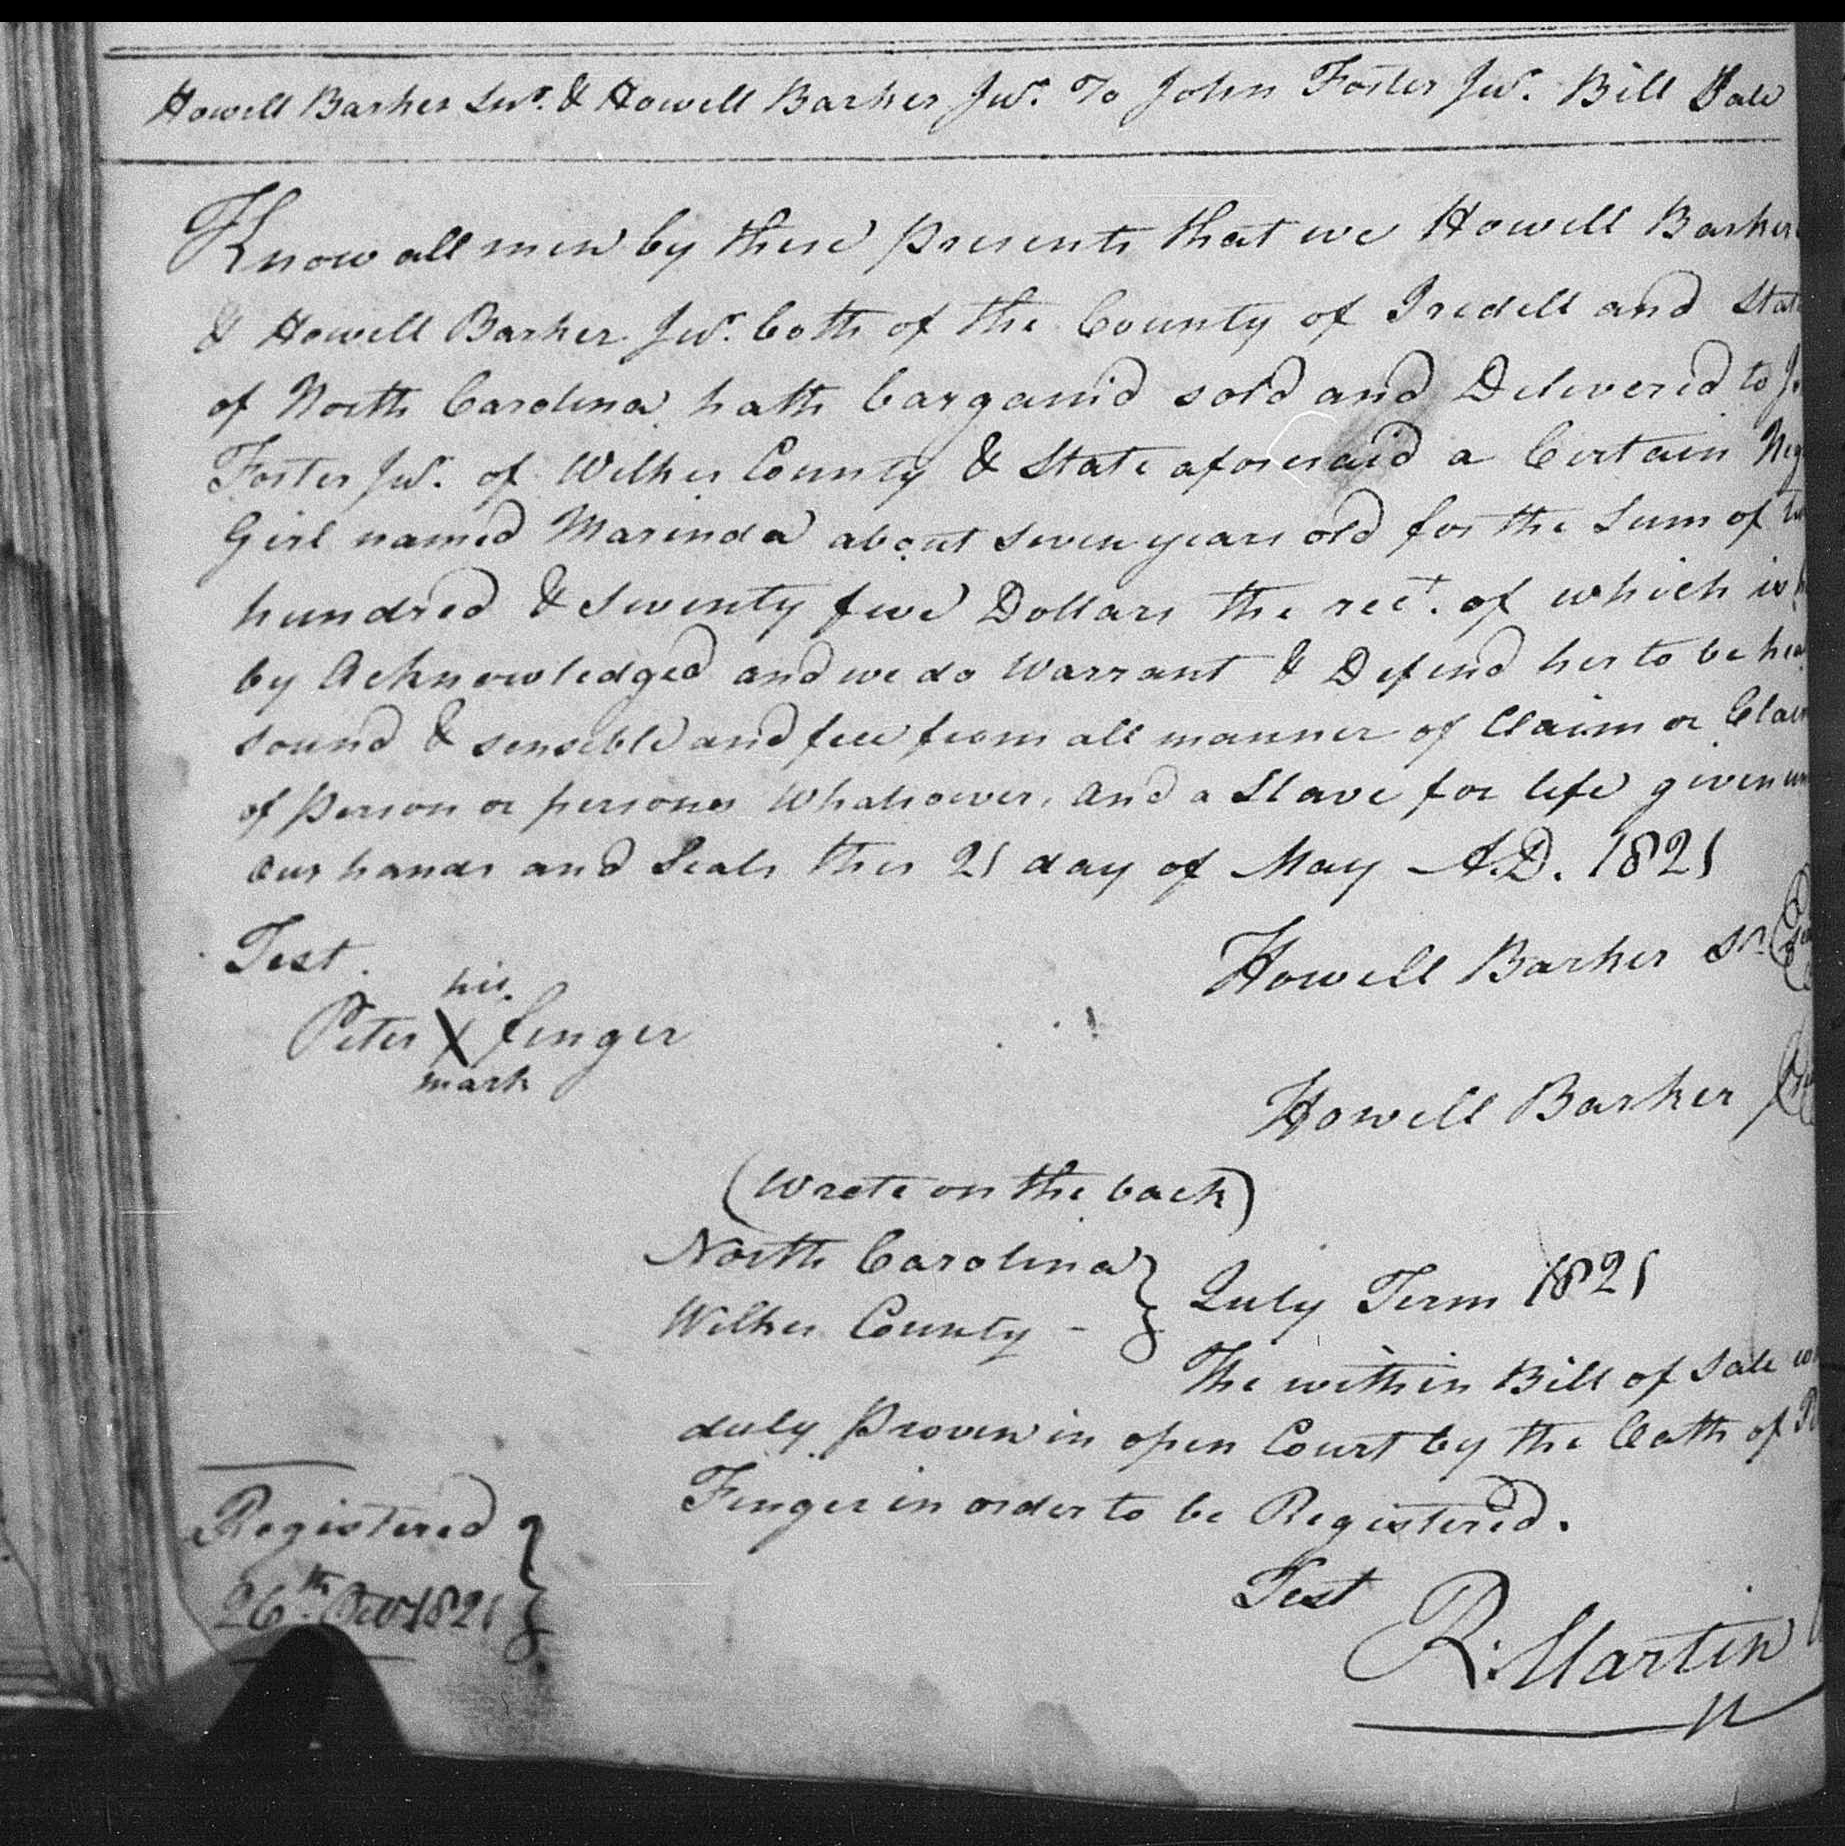 Howell Barker Snr. & Howell Barker Jur. To John Foster Jur. Bill Sale
Know all men by these presents that we Howell Barker
& Howell Barker Jur. both of the County of Iredell and Stat
of North Carolina hath bargain'd sold and Delivered to
Foster Jur. of Wilkes County & State aforesaid a Certain Neg
Girl named Marinda about seven years old for the Sum of
hundred & Seventy five Dollars the rect. of which is
by Acknowledged and we do Warrant & Defend her to be hea
sound & sensible and free from all manner of Claim or Claim
of Person or persons Whatsoever, and a Slave for life given un
our hands and Seals this 21 day of May A.D. 1821
Test.
Howell Barker Sr.
his
Peter X finger
mark
Howell Barker
(Wrote on the back)
North Carolina
Wilkes County -
July Term 1821
The within Bill of Sale w
duly Proven in open Court by the Oath of P
Finger in order to be Registered.
Registered
26th 1821
Test
R. Martin